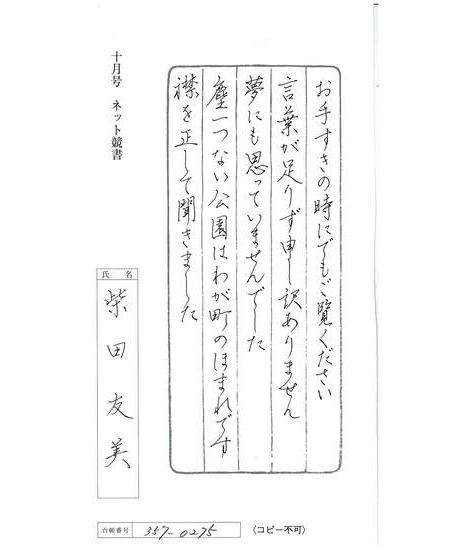 お手すきの時にでもご覧ください
言葉が足りず申し訳ありません
夢にも思っていませんでした
塵一つない公園はわが町のほまれです
襟を正して聞きました
十月号 ネット競書
氏名
柴田友美
台帳番号 357-0275
〈コピー不可〉